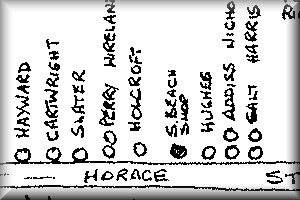 HAYWARD
CARTWRIGHT
SLATER
PERRY WIRELAN
HOLCROFT
S. BEACH
SHOP
HUGHES
ADDISS NICHO
SALT HARRIS
HORACE
ST